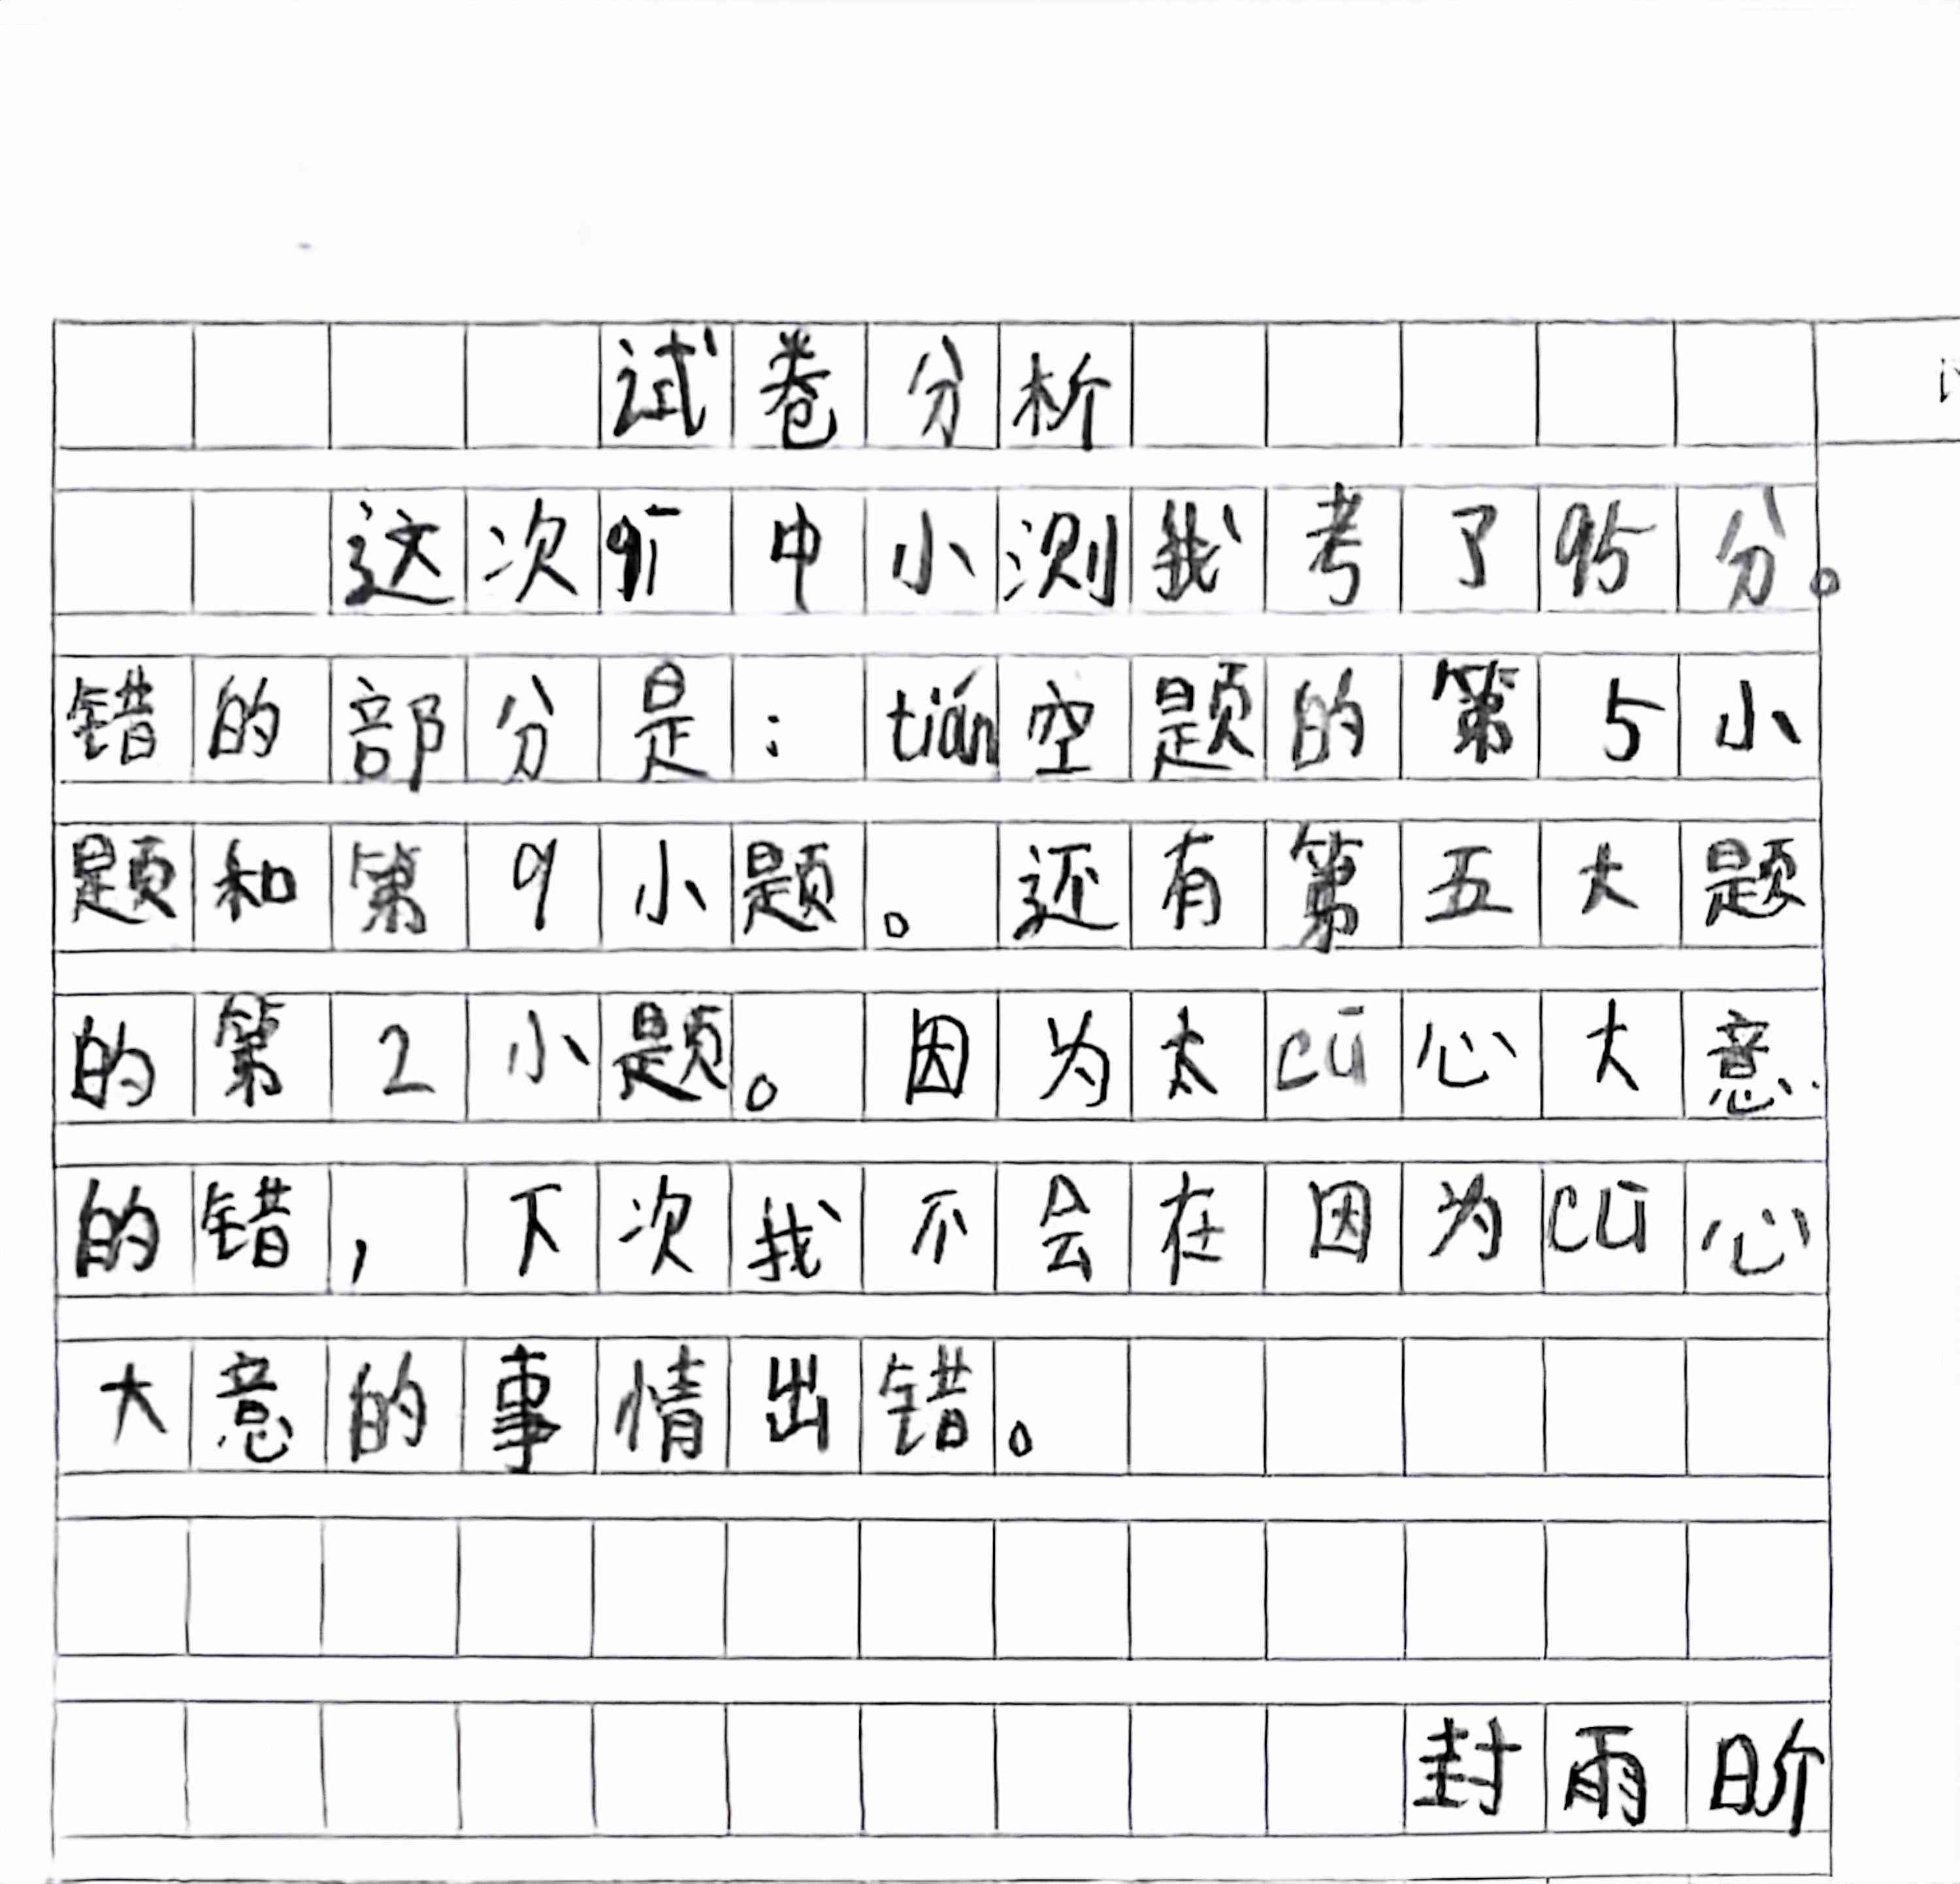 试卷分析
这次qī中小测我考了95分。
错的部分是：tián空题的第5小
题和第9小题。还有第五大题
的第2小题。因为太cū心大意
的错，下次我不会在因为cū心
大意的事情出错。
封雨昕